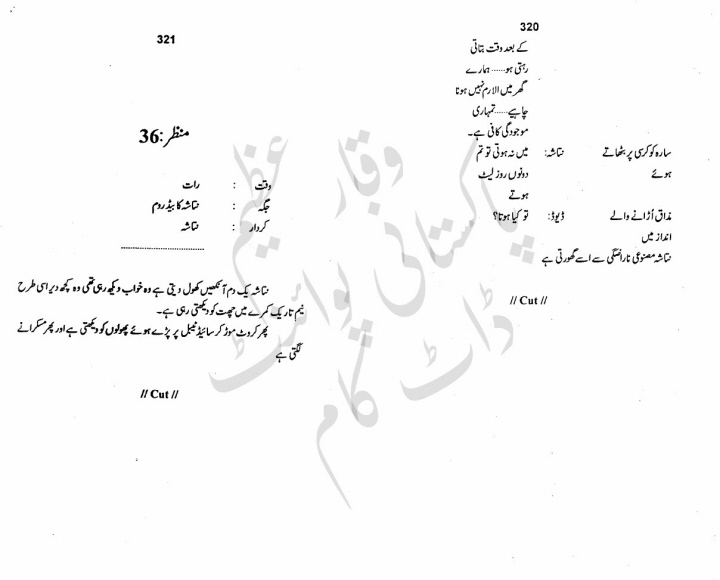 320
کے بعد وقت بتاتی
رہتی ہو...... ہمارے
گھر میں الارم نہیں ہونا
چاہیے......تمہاری
موجودگی کافی ہے۔
سارہ کو کرسی پر بٹھاتے نتاشہ: میں نہ ہوتی تو تم
ہوئے دونوں روز لیٹ
ہوتے
مذاق اُڑانے والے ڈیوڈ: تو کیا ہوتا؟
انداز میں
نتاشہ مصنوعی ناراضگی سے اسے گھورتی ہے
// Cut //
321
منظر:36
وقت : رات
جگہ : نتاشہ کا بیڈ روم
کردار : نتاشہ
نتاشہ یک دم آنکھیں کھول دیتی ہے وہ خواب دیکھ رہی تھی وہ کچھ دیر اسی طرح
نیم تاریک کمرے میں چھت کو دیکھتی رہی ہے۔
پھر کروٹ موڑ کر سائیڈ ٹیبل پر پڑے ہوئے پھولوں کو دیکھتی ہے اور پھر مسکرانے
لگتی ہے
// Cut //
وقار عظیم
پاکستانی پوائنٹ
ڈاٹ کام